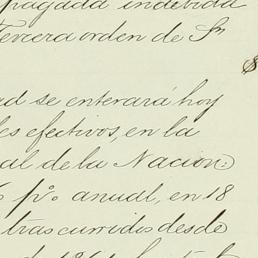 pagada indebida
Tercera orden de Sn
$
ad se enterará hoy
les efectivos, en la
al de la Nacion:)
6 po anual, en 18
trascurridos desde